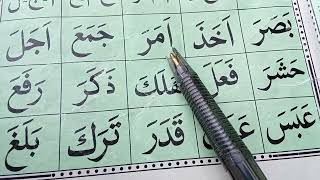 بَصَرَ اَخَذَ اَمَرَ جَمَعَ اَجَلَ
حَشَرَ فَعَلَ ذَكَرَ رَفَعَ
عَبَسَ قَدَرَ تَرَكَ بَلَغَ